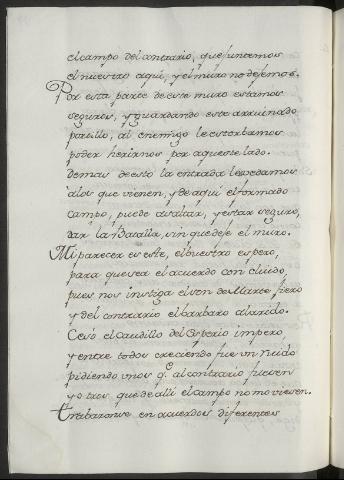 el campo del contrario, que juntemos
el nuestro aqui, y el muro no dejemos.
Por esta parte de este muro estamos
seguros, y guardando este arruinado
portillo, al enemigo le estorbamos
poder herirnos por aqueste lado.
demas de esto la entrada le vedamos
alos que vienen, y de aqui el formado
campo, puede asaltar, y estar seguro,
dar la Batalla, sin que deje el muro.
Mi parecer es este, el buestro espero,
para que sea el acuerdo con cluido,
pues nos instiga el son de Marte fiero
y del contrario el barbaro alarido.
Cesó el caudillo del Esperio impero,
y entre todos creciendo fue un ruido
pidiendo unos q.e al contrario fuesen
y otros que de alli el campo no moviesen.
Trabaronse en acuerdos diferentes